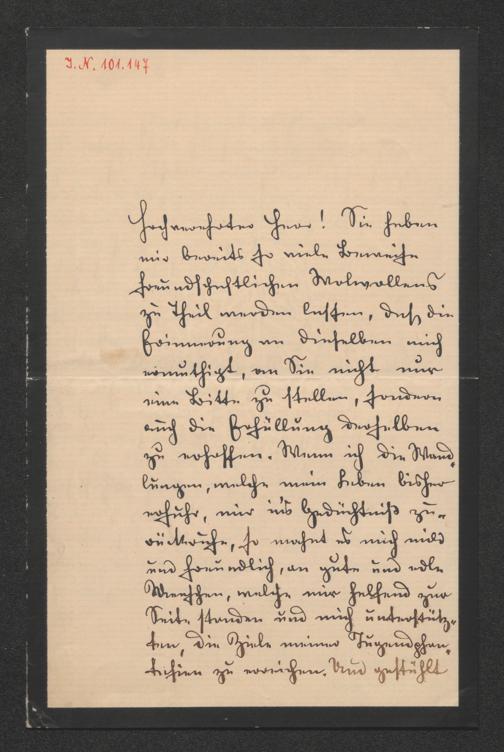 I.N. 101.147
Hochverehrter Herr! Sie haben
mir bereits so viele Beweise
freundschaftlichen Wolwollens
zu Theil werden lassen, daß die
Erinnerung an dieselben mich
ermuthigt, an Sie nicht nur
eine Bitte zu stellen, sondern
auch die Erfüllung derselben
zu erhoffen. Wenn ich die Wand-
lungen, welche mein Leben bisher
erfuhr, mir in's Gedächtniß zu-
rückrufe, so mahnt es mich mild
und freundlich, an gute und edle
Menschen, welche mir helfend zur
Seite standen und mich unterstütz-
ten, die Ziele meiner Jugendphan-
tasien zu erreichen. Und gestählt